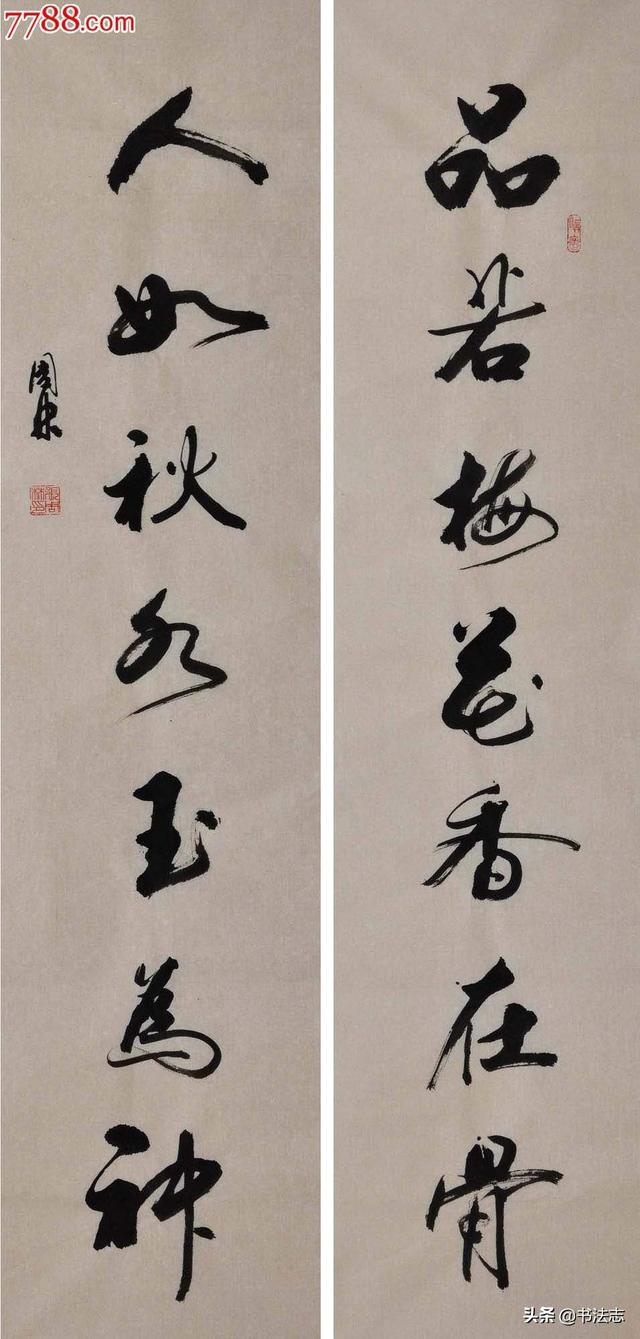 7788.com
品若梅花香在骨
人如秋水玉為神
周東
头条 @书法志